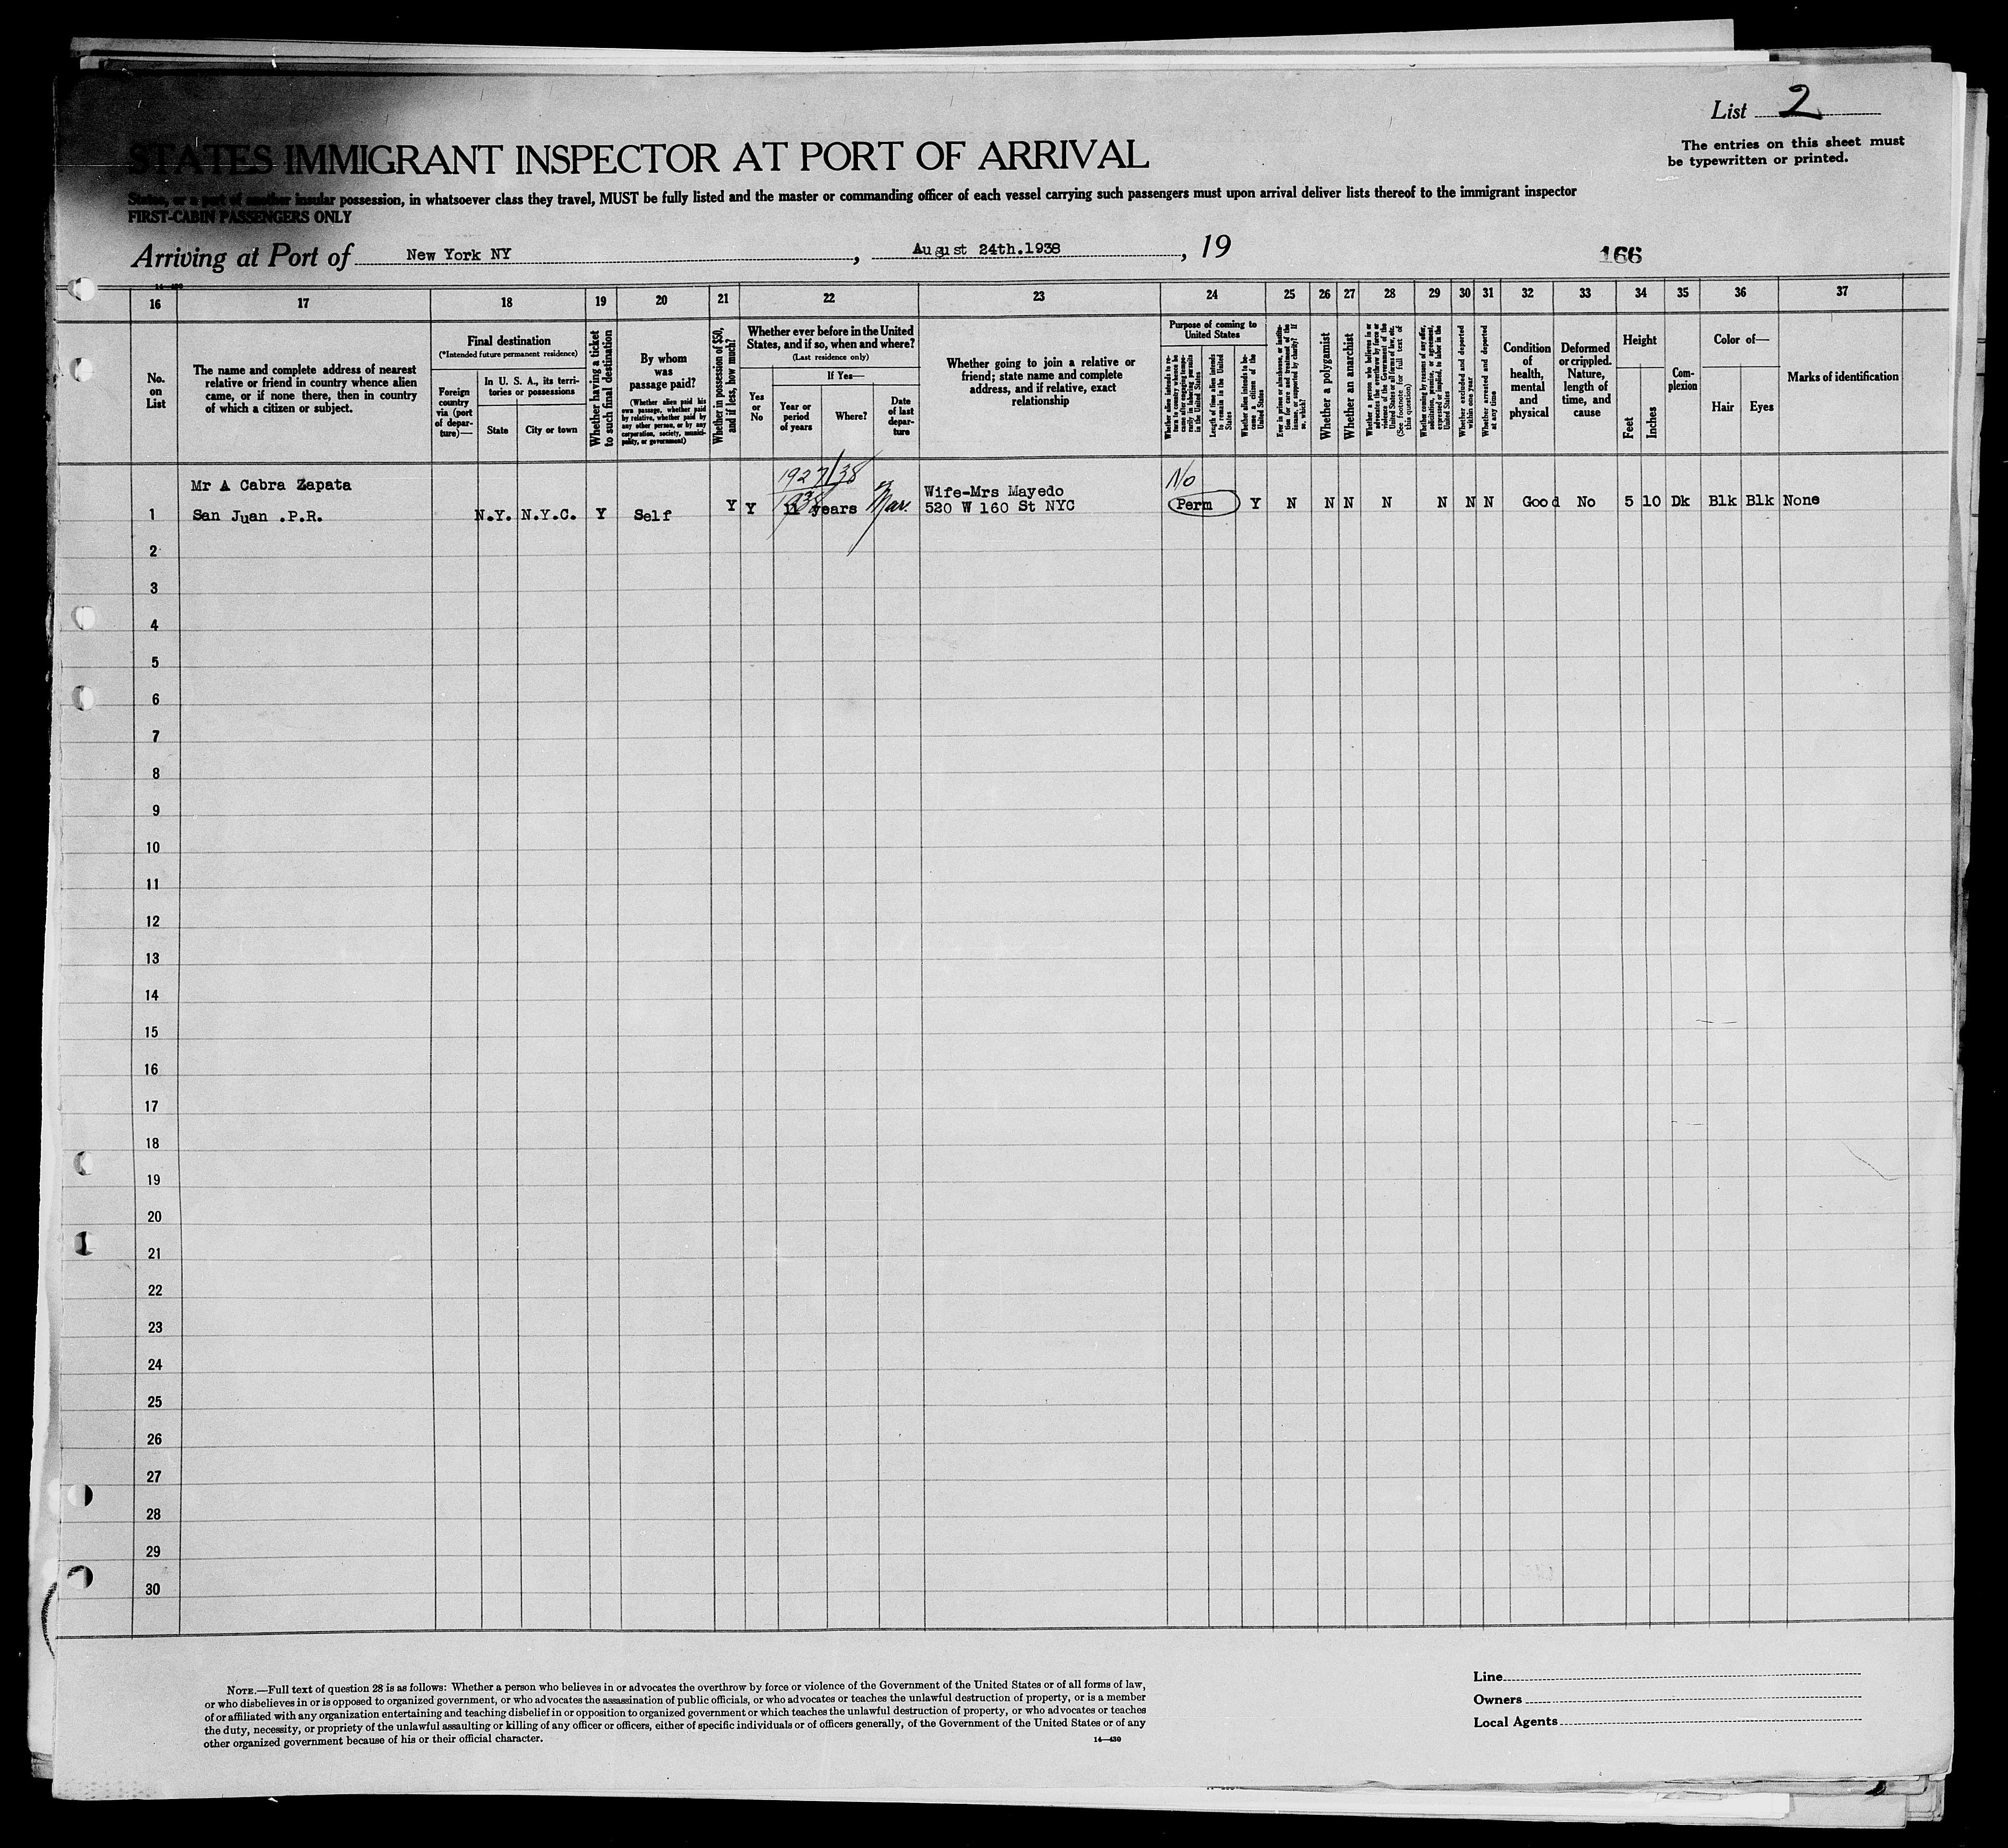 List 2
The entries on this sheet must
be typewritten or printed.
STATES IMMIGRANT INSPECTOR AT PORT OF ARRIVAL
States, or a part of another insular possession, in whatsoever class they travel, MUST be fully listed and the master or commanding officer of each vessel carrying such passengers must upon arrival deliver lists thereof to the immigrant inspector
FIRST-CABIN PASSENGERS ONLY
Arriving at Port of New York NY, August 24th.1938, 19
166
14—430
16 17 18 19 20 21 22 23 24 25 26 27 28 29 30 31 32 33 34 35 36 37
No.
on
List
The name and complete address of nearest
relative or friend in country whence alien
came, or if none there, then in country
of which a citizen or subject.
Final destination
(*Intended future permanent residence)
Foreign
country
via (port
of depar-
ture)—
In U. S. A., its terri-
tories or possessions
State
City or town
Whether having a ticket
to such final destination
By whom
was
passage paid?
(Whether alien paid his
own passage, whether paid
by relative, whether paid by
any other person, or by any
corporation, society, munici-
pality, or government)
Whether in possession of $50,
and if less, how much?
Whether ever before in the United
States, and if so, when and where?
(Last residence only)
Yes
or
No
If Yes—
Year or
period
of years
Where?
Date
of last
depar-
ture
Whether going to join a relative or
friend; state name and complete
address, and if relative, exact
relationship
Purpose of coming to
United States
Whether alien intends to re-
turn to country whence he
came after engaging tempo-
rarily in laboring pursuits
in the United States
Length of time alien intends
to remain in the United
States
Whether alien intends to be-
come a citizen of the
United States
Ever in prison or almshouse, or institu-
tion for care and treatment of the
insane, or supported by charity? If
so, which?
Whether a polygamist
Whether an anarchist
Whether a person who believes in or
advocates the overthrow by force or
violence of the Government of the
United States or all forms of law, etc.
(See footnote for full text of
this question)
Whether coming by reasons of any offer,
solicitation, promise, or agreement,
expressed or implied, to labor in the
United States
Whether excluded and deported
within one year
Whether arrested and deported
at any time
Condition
of
health,
mental
and
physical
Deformed
or crippled.
Nature,
length of
time, and
cause
Height
Feet
Inches
Com-
plexion
Color of—
Hair
Eyes
Marks of identification
1927/38 No
Mr A Cabra Zapata Wife-Mrs Mayedo
1 San Juan .P.R. N.Y. N.Y.C. Y Self Y Y 1938 11 years Mar. 520 W 160 St NYC Perm Y N N N N N N N Good No 5 10 Dk Blk Blk None
2
3
4
5
6
7
8
9
10
11
12
13
14
15
16
17
18
19
20
21
22
23
24
25
26
27
28
29
30
NOTE.—Full text of question 28 is as follows: Whether a person who believes in or advocates the overthrow by force or violence of the Government of the United States or of all forms of law,
or who disbelieves in or is opposed to organized government, or who advocates the assassination of public officials, or who advocates or teaches the unlawful destruction of property, or is a member
of or affiliated with any organization entertaining and teaching disbelief in or opposition to organized government or which teaches the unlawful destruction of property, or who advocates or teaches
the duty, necessity, or propriety of the unlawful assaulting or killing of any officer or officers, either of specific individuals or of officers generally, of the Government of the United States or of any
other organized government because of his or their official character.
14—430
Line
Owners
Local Agents